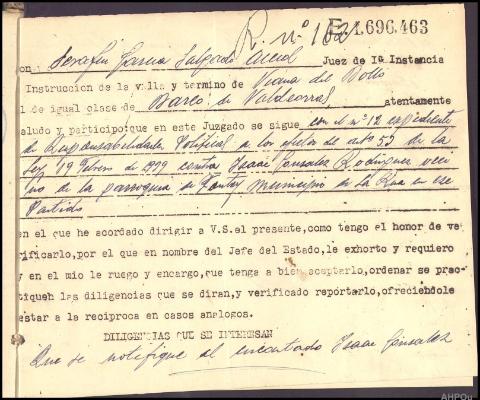 R. nº 162 E 1.696.463
on Serafin Garcia Salgado Juez de Iª Instancia
Instruccion de la villa y termino de Viana del Bollo
l de igual clase de Barco de Valdeorras atentamente
aludo y participo que en este Juzgado se sigue con el nº 12 expediente
de Responsabilidades Politicas a los efectos de arto 53 de la
Ley 19 Febrero de 1939 contra Isaac Gonzalez Rodriguez veci
no de la parroquia de Fontey Municipio de La Rua en ese
Partido
en el que he acordado dirigir a V.S. el presente, como tengo el honor de ve
rificarlo, por el que en nombre del Jefe del Estado, le exhorto y requiero
y en el mio le ruego y encargo, que tenga a bien aceptarlo, ordenar se prac
tiqueh las diligencias que se diran, y verificado reportarlo, ofreciendole
estar a la reciproca en casos analogos.
DILIGENCIAS QUE SE INTERESAN
Que se notifique al encartado Isaac Gonzalez
AHPOu